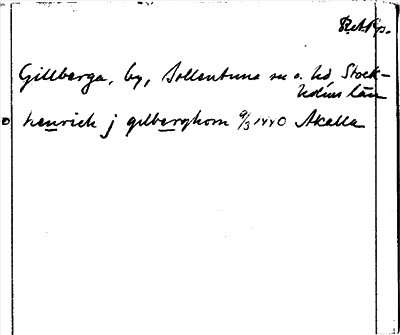 RAPp.
Gillberga, by, Sollentuna sn o. hd, Stock-
holms län
henrich j gilberghom 9/3 1440 Akalla